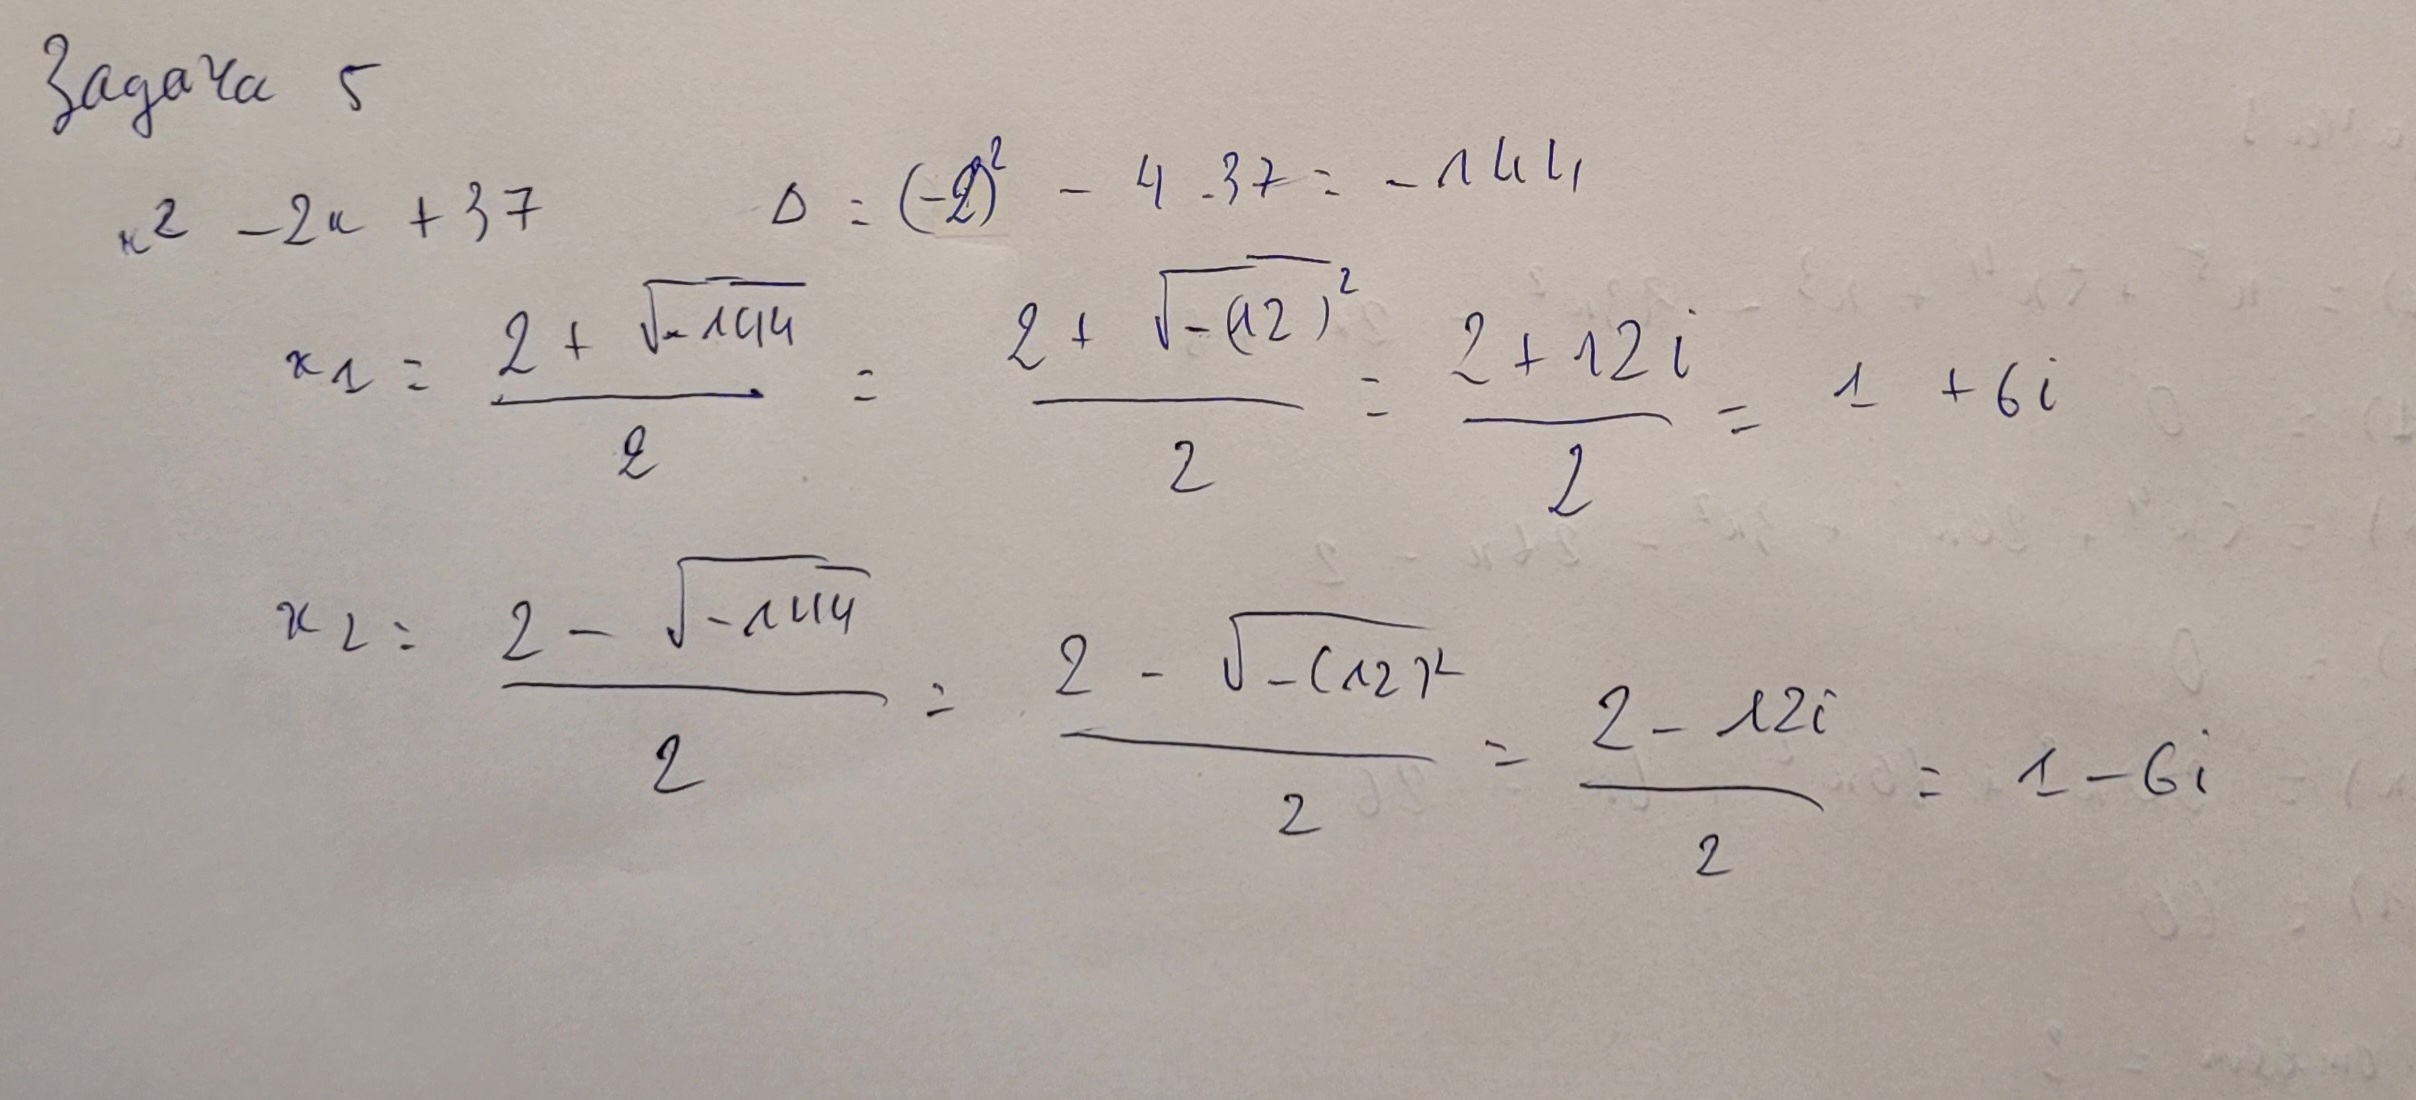 Задача 5
x² -2x +37 Δ = (-2)² - 4.37 = -144
x₁ = (2 + √-144)/2 = (2 + √-(12)²)/2 = (2 + 12i)/2 = 1 + 6i
x₂ = (2 - √-144)/2 = (2 - √-(12)²)/2 = (2 - 12i)/2 = 1 - 6i